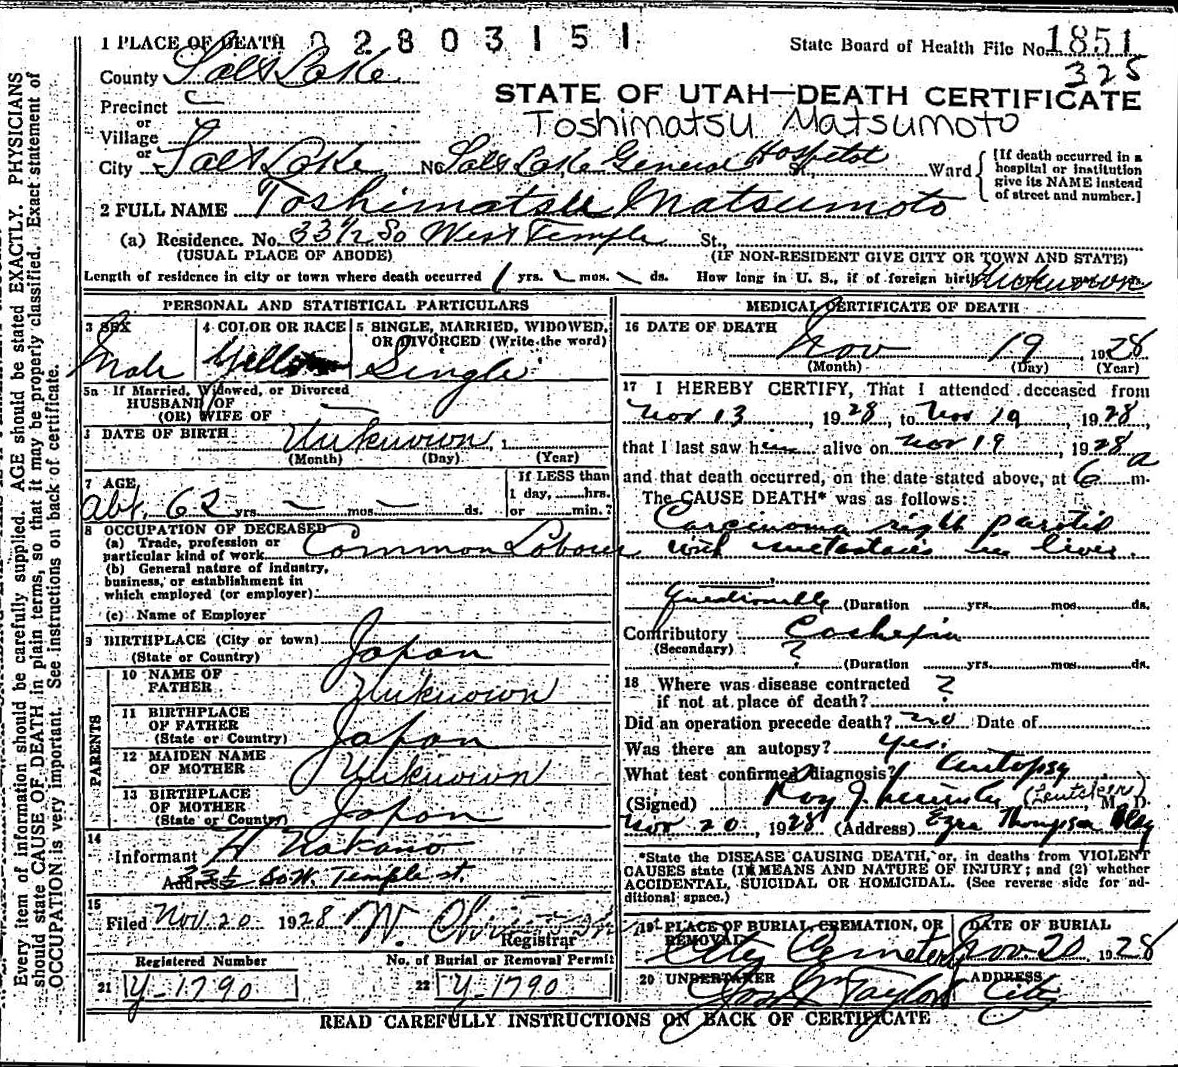 1 PLACE OF DEATH 02803151
State Board of Health File No. 1851
325
County Salt Lake
STATE OF UTAH—DEATH CERTIFICATE
Precinct
or
Toshimatsu Matsumoto
Village
or
City Salt Lake No. Salt Lake General Hospital St., Ward
[If death occurred in a hospital or institution give its NAME instead of street and number.]
2 FULL NAME Toshimatsu Matsumoto
(a) Residence. No. 33 1/2 So West Temple St.,
(USUAL PLACE OF ABODE) (IF NON-RESIDENT GIVE CITY OR TOWN AND STATE)
Length of residence in city or town where death occurred 1 yrs. — mos. — ds. How long in U. S., if of foreign birth Unknown
PERSONAL AND STATISTICAL PARTICULARS
3 SEX 4 COLOR OR RACE 5 SINGLE, MARRIED, WIDOWED, OR DIVORCED (Write the word)
Male Yellow Single
5a If Married, Widowed, or Divorced
HUSBAND OF
(OR) WIFE OF —
DATE OF BIRTH Unknown, 1
(Month) (Day) (Year)
7 AGE If LESS than
1 day, hrs.
Abt. 62 yrs. — mos. — ds. or min.?
8 OCCUPATION OF DECEASED
(a) Trade, profession or
particular kind of work Common Labour
(b) General nature of industry,
business, or establishment in
which employed (or employer)
(c) Name of Employer
9 BIRTHPLACE (City or town)
(State or Country) Japan
PARENTS
10 NAME OF
FATHER Unknown
11 BIRTHPLACE
OF FATHER
(State or Country) Japan
12 MAIDEN NAME
OF MOTHER Unknown
13 BIRTHPLACE
OF MOTHER
(State or Country) Japan
14
Informant H Nakano
Address 33 1/2 So W. Temple st
15
Filed Nov. 20 1928 W.
Registrar
Registered Number No. of Burial or Removal Permit
21 Y-1790 22 Y-1790
MEDICAL CERTIFICATE OF DEATH
16 DATE OF DEATH
Nov 19, 1928
(Month) (Day) (Year)
17 I HEREBY CERTIFY, That I attended deceased from
Nov 13, 1928, to Nov 19, 1928,
that I last saw him alive on Nov 19, 1928
and that death occurred, on the date stated above, at 6 a m.
The CAUSE DEATH* was as follows:
Carcinoma right parotid
with metastasis in liver.
Questionable (Duration yrs. mos. ds.
Contributory Cachexia
(Secondary) ?
(Duration yrs. mos. ds.
18 Where was disease contracted
if not at place of death? ?
Did an operation precede death? no Date of
Was there an autopsy? Yes.
What test confirmed diagnosis? Autopsy
(Signed) Roy J. (Leutsker) M. D.
Nov 20, 1928 (Address) Ezra Thompson Bldg
*State the DISEASE CAUSING DEATH, or, in deaths from VIOLENT
CAUSES state (1) MEANS AND NATURE OF INJURY; and (2) whether
ACCIDENTAL, SUICIDAL OR HOMICIDAL. (See reverse side for ad-
ditional space.)
19 PLACE OF BURIAL, CREMATION, OR REMOVAL DATE OF BURIAL
City Cemetery Nov. 20 1928
20 UNDERTAKER ADDRESS
Taylor City
READ CAREFULLY INSTRUCTIONS ON BACK OF CERTIFICATE
Every item of information should be carefully supplied. AGE should be stated EXACTLY. PHYSICIANS
should state CAUSE OF DEATH in plain terms, so that it may be properly classified. Exact statement of
OCCUPATION is very important. See instructions on back of certificate.